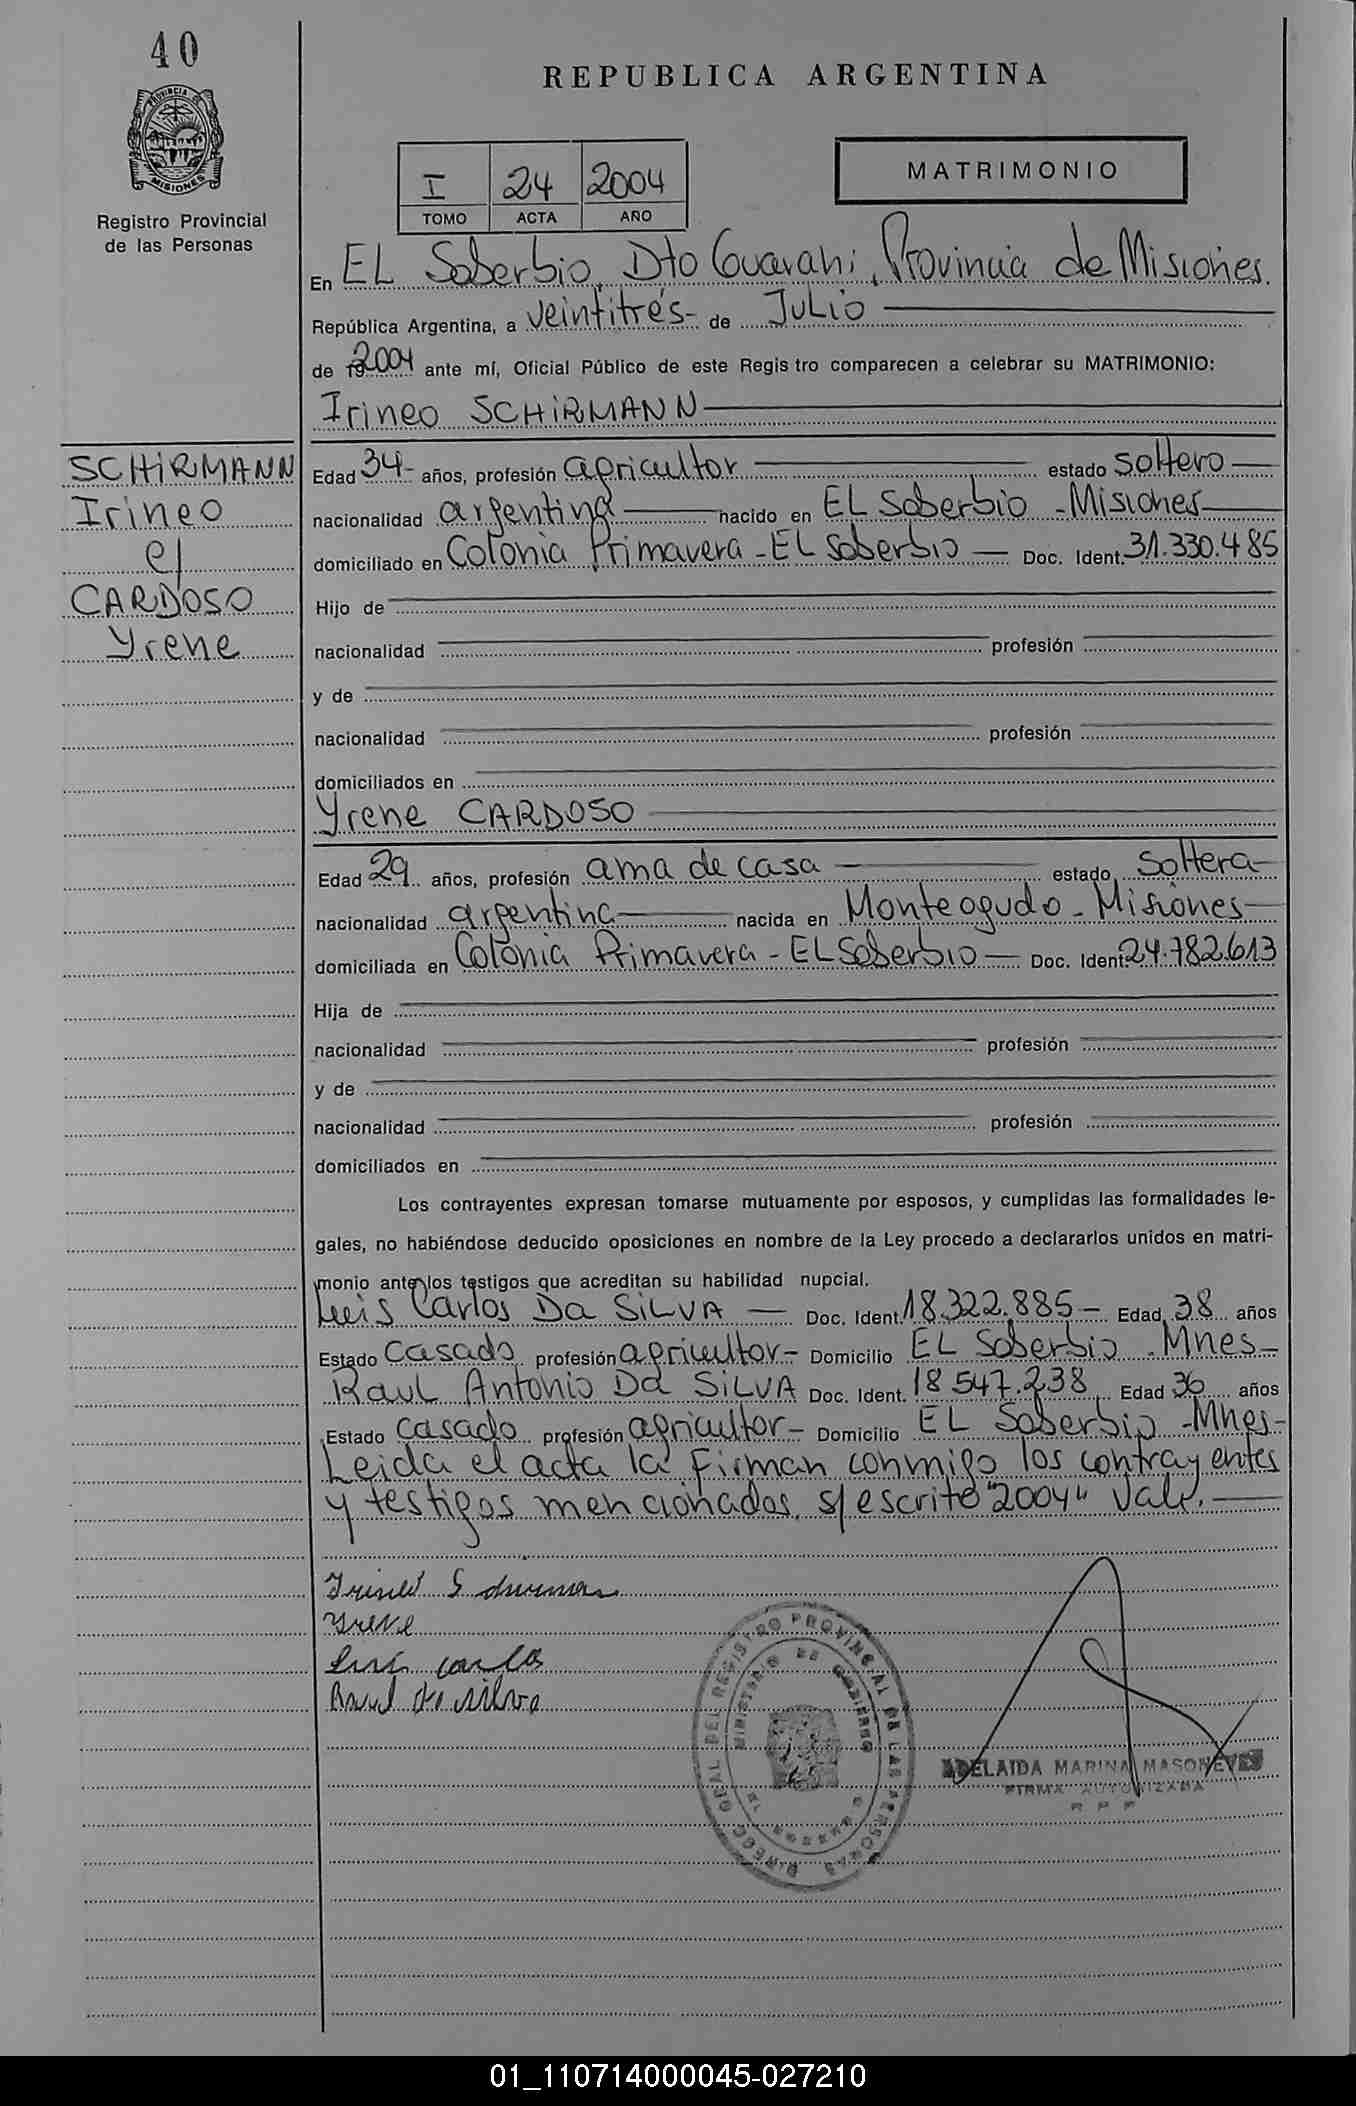 40
PROVINCIA DE
MISIONES
Registro Provincial
de las Personas
REPUBLICA ARGENTINA
I 24 2004
TOMO ACTA AÑO
MATRIMONIO
En EL Soberbio, Dto Guarani, Provincia de Misiones.
República Argentina, a veintitrés- de Julio
de 19 2004 ante mí, Oficial Público de este Registro comparecen a celebrar su MATRIMONIO:
Irineo SCHiRMANN
SCHiRMANN
Irineo
c/
CARDOSO
Yrene
Edad 34- años, profesión agricultor estado soltero
nacionalidad argentina nacido en EL Soberbio - Misiones
domiciliado en Colonia Primavera - EL Soberbio Doc. Ident. 31.330.485
Hijo de
nacionalidad profesión
y de
nacionalidad profesión
domiciliados en
Yrene CARDOSO
Edad 29 años, profesión ama de casa estado soltera
nacionalidad argentina nacida en Monteagudo - Misiones
domiciliada en Colonia Primavera - EL Soberbio Doc. Ident. 24.782.613
Hija de
nacionalidad profesión
y de
nacionalidad profesión
domiciliados en
Los contrayentes expresan tomarse mutuamente por esposos, y cumplidas las formalidades le-
gales, no habiéndose deducido oposiciones en nombre de la Ley procedo a declararlos unidos en matri-
monio ante los testigos que acreditan su habilidad nupcial.
Luis Carlos DA SiLVA Doc. Ident. 18.322.885- Edad 38 años
Estado Casado profesión agricultor- Domicilio EL Soberbio - Mnes-
Raul Antonio DA SiLVA Doc. Ident. 18 547.238 Edad 36 años
Estado casado profesión agricultor- Domicilio EL Soberbio - Mnes-
Leida el acta la firman conmigo los contrayentes
y testigos mencionados. s/escrito "2004" Vale.
Yrene
Luis Carlos
Raul da silva
DIRECC. GRAL. DEL REGISTRO PROVINCIAL DE LAS PERSONAS
MINISTERIO DE GOBIERNO
ADELAIDA MARINA MASONEVES
FIRMA AUTORIZADA
R P P
01_110714000045-027210